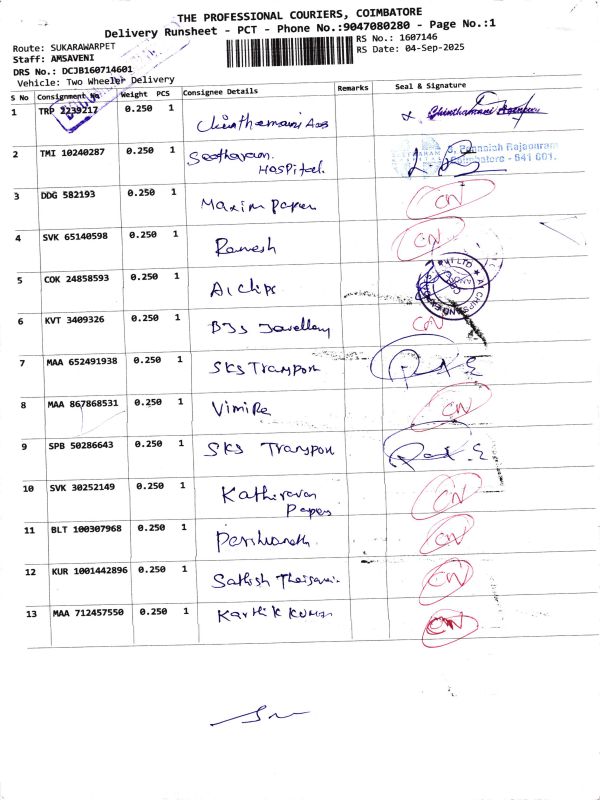 THE PROFESSIONAL COURIERS, COIMBATORE
Delivery Runsheet - PCT - Phone No.:9047080280 - Page No.:1
Route: SUKARAWARPET
RS No.: 1607146
Staff: AMSAVENI
RS Date: 04-Sep-2025
DRS No.: DCJB160714601
Vehicle: Two Wheeler Delivery
S No Consignment No Weight PCS Consignee Details Remarks Seal & Signature
1 TRP 2239217 0.250 1 Chinthamani
2 TMI 10240287 0.250 1 Seetharam Hospital.
3 DDG 582193 0.250 1 Maxim Paper CN
4 SVK 65140598 0.250 1 Ramesh CN
5 COK 24858593 0.250 1 A1 Chips
6 KVT 3409326 0.250 1 CN
7 MAA 652491938 0.250 1 SKS Transport
8 MAA 867868531 0.250 1 CN
9 SPB 50286643 0.250 1 SKS Transport
10 SVK 30252149 0.250 1 Kathiravan Papers CN
11 BLT 100307968 0.250 1 CN
12 KUR 1001442896 0.250 1 Sathish CN
13 MAA 712457550 0.250 1 Karthik Kumar CN
Coimbatore - 641 001.